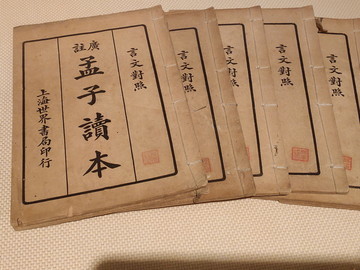 言文對照
廣註
孟子讀本
上海世界書局印行
言文對照
言文對照
言文對照
言文對照